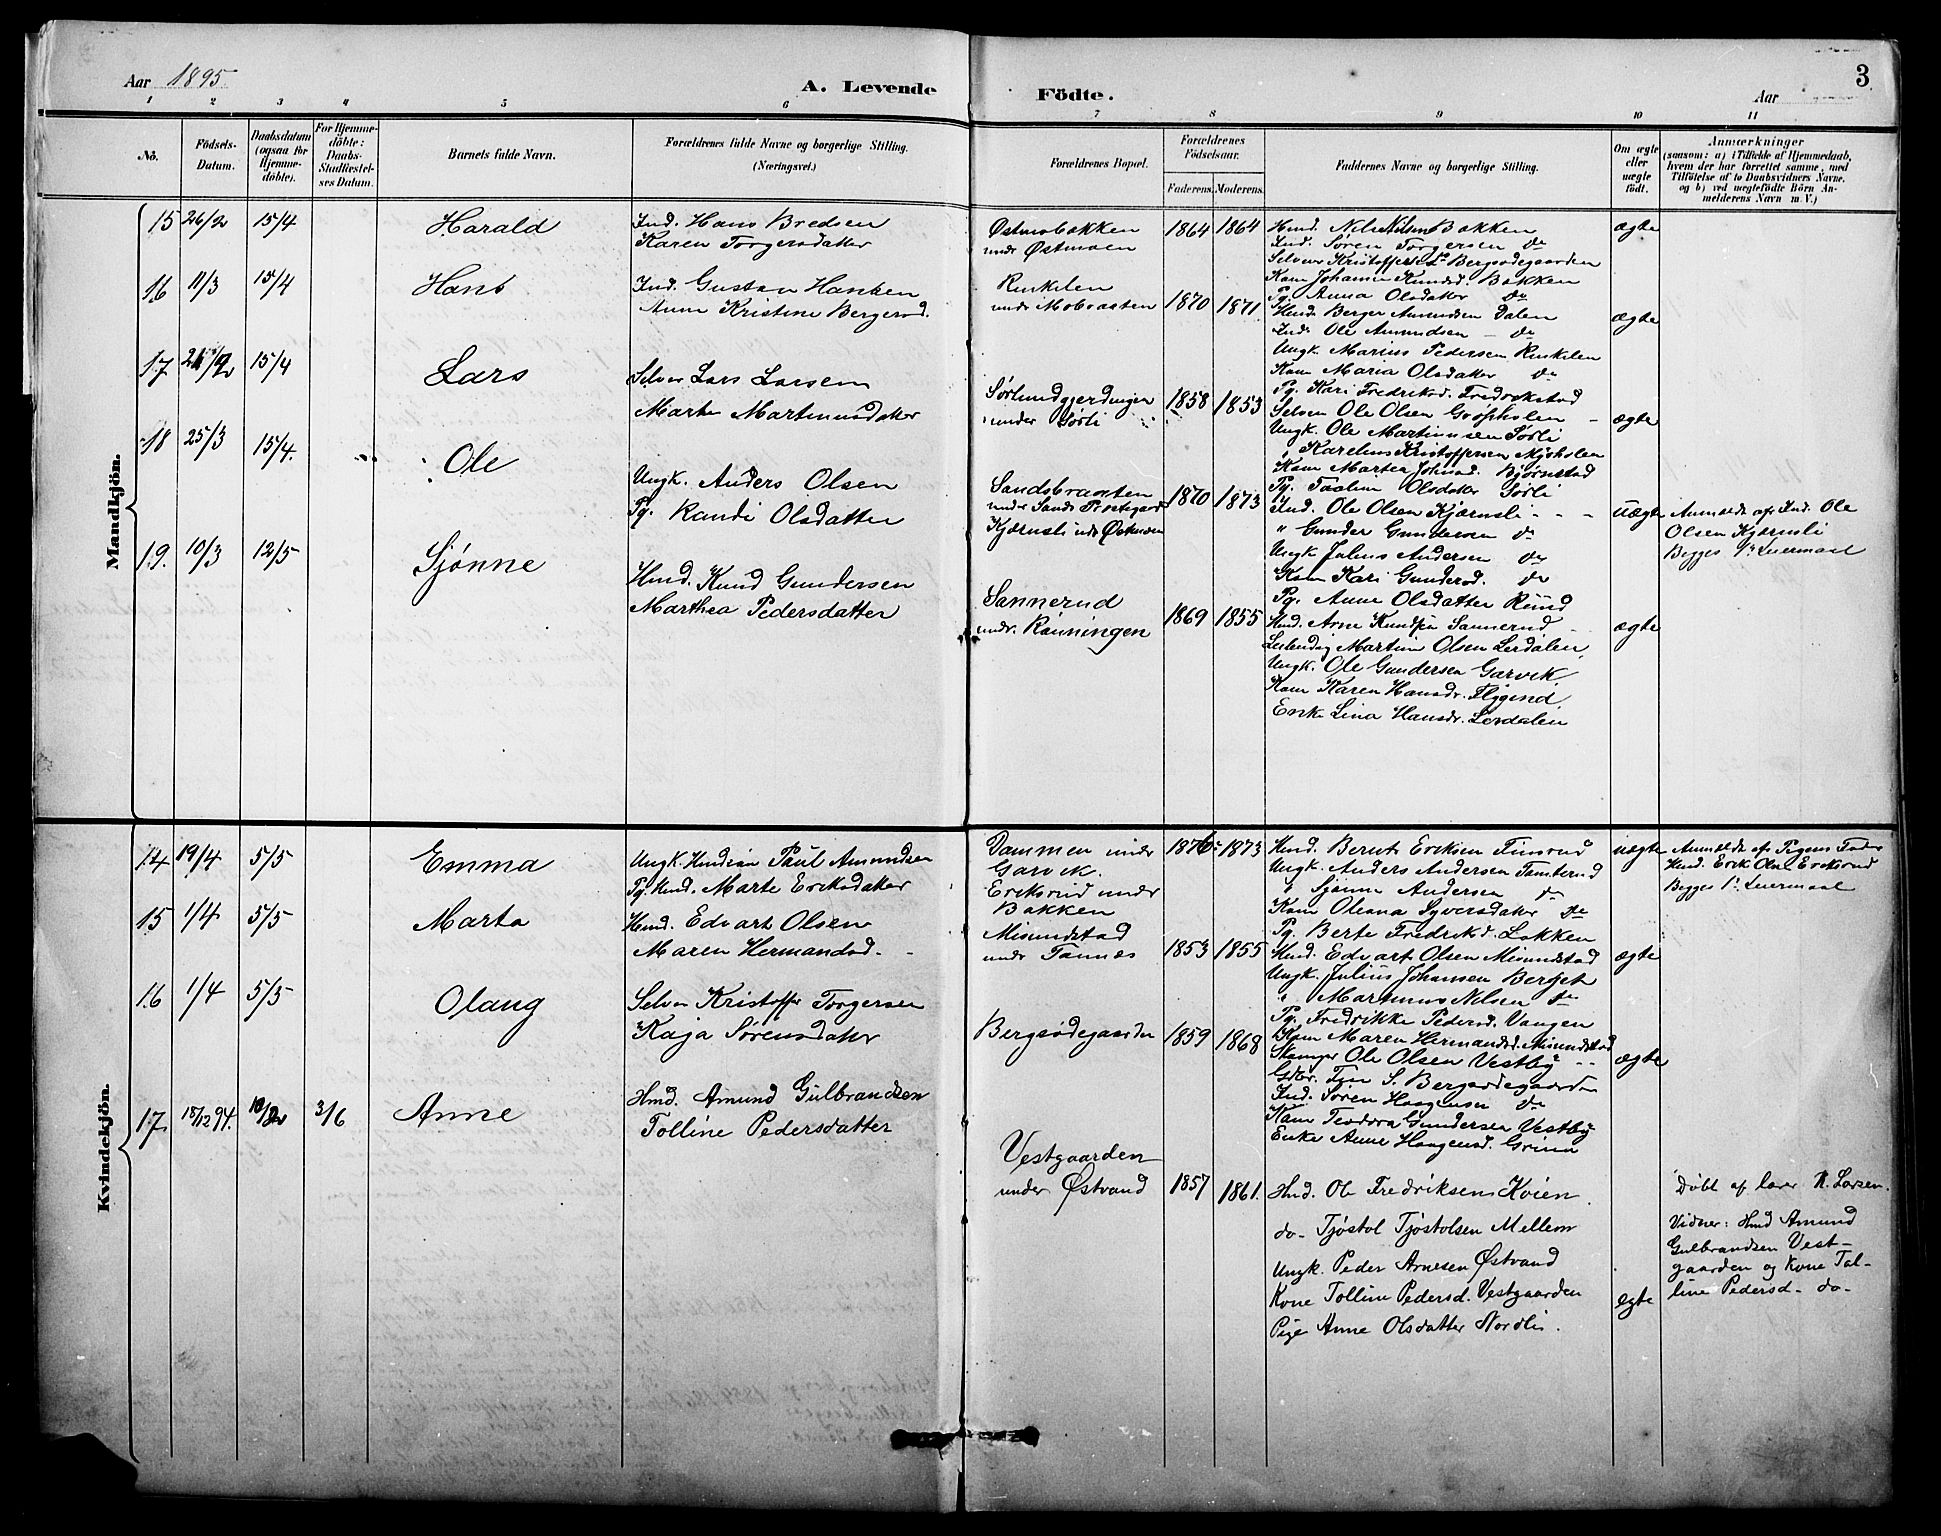 Aar 1895
A. Levende
Födte.
3
Aar
1 2 3 4 5 6 7 8 9 10 11
No.
Födsels-
Datum.
Daabsdatum
(ogsaa for
Hjemme-
döbte).
For Hjemme-
döbte:
Daabs-
Stadfæstel-
ses Datum.
Barnets fulde Navn.
Forældrenes fulde Navne og borgerlige Stilling.
(Næringsvei.)
Forældrenes Bopæl.
Forældrenes
Födselsaar.
Faderens. Moderens.
Faddernes Navne og borgerlige Stilling.
Om ægte
eller
uægte
födt.
Anmærkninger
(saasom: a) i Tilfælde af Hjemmedaab,
hvem der har forrettet samme, med
Tilföielse af to Daabsvidners Navne,
og b) ved uægtefödte Börn An-
melderens Navn m. V.)
Mandkjön.
15 26/2 15/4 Harald
Ind. Hans Bredsen
Karen Torgersdatter
Østmobakken
under Østmoen
1864 1864
Hmd. Nils Nilsen Bakken
Ind. Søren Torgersen do
Selveier Kristoffer Bergsødegaarden
Kone Johanne Knudsd. Bakken
Pg. Anna Olsdatter do
ægte
16 11/3 15/4 Hans
Ind. Gustav Hansen
Anne Kristine Bergersd.
Ruskelen
under Mobraaten
1870 1871
Hmd. Berger Amundsen Dalen
Ind. Ole Amundsen - do
Ungk. Marius Pedersen Ruskelen
Kone Maria Olsdatter do
Pg. Kari Fredriksd. Fredrikstad
ægte
17 15/4 Lars
Selveier Lars Larsen
Marte Martinusdatter
Sørlundgjerdingen
under Sørli
1858 1853
Selveier Ole Olsen
Ungk. Ole Martinusen Sørli
" Karelius Kristoffersen
Kone Martea Johnsd. Bjørnstad
Pg. Olsdatter Sørli
ægte
18 25/3 15/4. Ole
Ungk. Anders Olsen
Pg. Randi Olsdatter
Sandsbraaten
under Sands
Kjærnsli under Østmoen
1870 1873
Ind. Ole Olsen Kjærnsli - - -
" Gunder Gundersen do
Ungk. Julius Andersen do
Kone Kari Gundersd. do
Pg. Anne Olsdatter Rund
uægte
Anmeldt af Ind. Ole
Olsen Kjærnsli
Begges 1ste Leiermaal
19. 10/3 12/5 Sjønne
Hmd. Knud Gundersen
Marthea Pedersdatter
Sannerud
under Rønningen
1869 1855
Hmd. Arne Knudsen Sannerud
Leilending Martin Olsen Lerdalen
Ungk. Ole Gundersen Garvik
Kone Karen Hansdr. Flygind
Enke Lina Hansdr. Lerdalen
ægte
Kvindekjön.
14 19/4 5/5 Emma
Ungk. Paul Amundsen
Pg. Hmd. Marte Eriksdatter
Dammen under
Garvik.
Eriksrud under
Bakken
1876 1873
Hmd. Bernt Eriksen Finsrud
Ungk. Anders Andersen Tamterud
" Sjønne Andersen do
Kone Oleana Syversdatter do
Pg. Berte Fredriksd. Løkken
uægte
Anmeldt af Pigens Fader
Hmd. Erik Olsen Eriksrud
Begges 1ste Leiermaal
15 1/4 5/5 Marta
Hmd. Edvart Olsen
Maren Hermansd.
Misundstad
under Tannes
1853 1855
Hmd. Edvart Olsen Misundstad
Ungk. Julius Johansen Berget
" Martinus Nilsen do
Pg. Fredrikke Pedersd. Vangen
Kone Maren Hermansd. Misundstad
ægte
16 1/4 5/5 Olaug
Selveier Kristoffer Torgersen
Kaja Sørensdatter
Bergsødegaarden
1859 1868
Ole Olsen Vestby
Gdbr. S. Bergsødegaarden
Ind. Søren Haagensen do
Kone Teodora Gundersen Vestby
Enke Anne Haagensd. Grina
ægte
17 18/12 94. 3/6 Anne
Hmd. Amund Gulbrandsen
Tolline Pedersdatter
Vestgaarden
under Østvand
1857 1861.
Hmd. Ole Fredriksen Koien
do- Tjøstol Tjøstolsen Mellem
Ungk. Peder Arnesen Østvand
Kone Tolline Pedersd. Vestgaarden
Pige Anne Olsdatter Nordli.
egte
Døbt af lærer K. Larsen.
Vidner: Hmd Amund
Gulbrandsen Vest-
gaarden og Kone Tol-
line Pedersd. do-